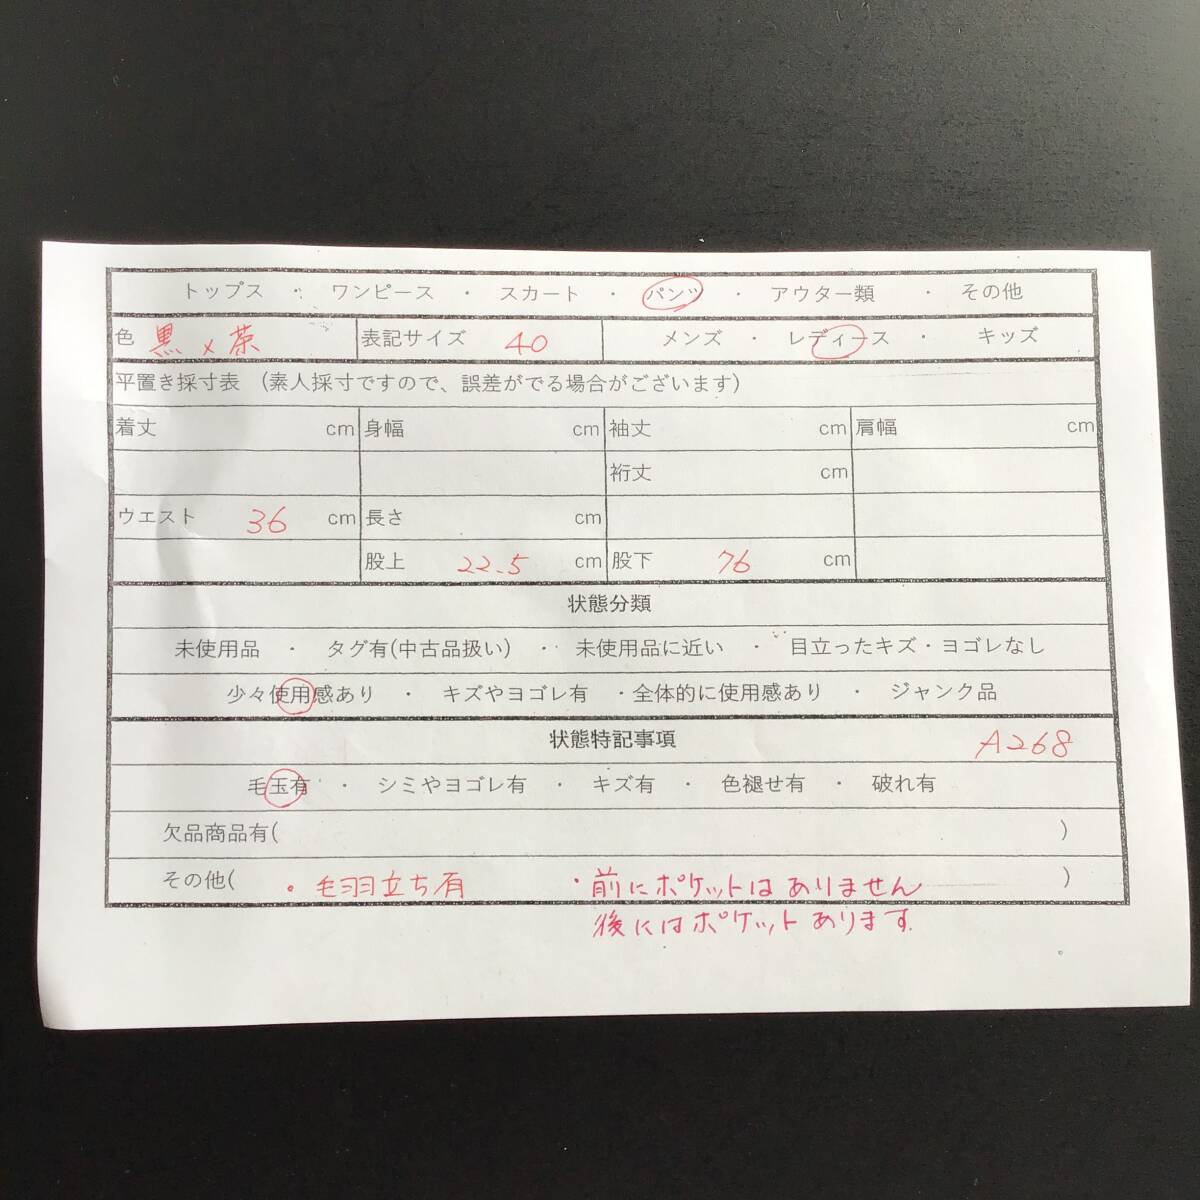 トップス ・ ワンピース ・ スカート ・ パンツ ・ アウター類 ・ その他
色 黒×茶 表記サイズ 40 メンズ ・ レディース ・ キッズ
平置き採寸表 （素人採寸ですので、誤差がでる場合がございます）
着丈 cm 身幅 cm 袖丈 cm 肩幅 cm
裄丈 cm
ウエスト 36 cm 長さ cm
股上 22.5 cm 股下 76 cm
状態分類
未使用品 ・ タグ有(中古品扱い) ・ 未使用品に近い ・ 目立ったキズ・ヨゴレなし
少々使用感あり ・ キズやヨゴレ有 ・全体的に使用感あり ・ ジャンク品
状態特記事項 A268
毛玉有 ・ シミやヨゴレ有 ・ キズ有 ・ 色褪せ有 ・ 破れ有
欠品商品有( )
その他( ・毛羽立ち有 ・前にポケットはありません )
後にはポケットあります